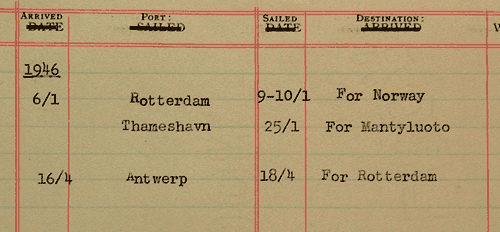 ARRIVED PORT: SAILED DESTINATION:
DATE SAILED DATE ARRIVED
1946
6/1 Rotterdam 9-10/1 For Norway
Thameshavn 25/1 For Mantyluoto
16/4 Antwerp 18/4 For Rotterdam